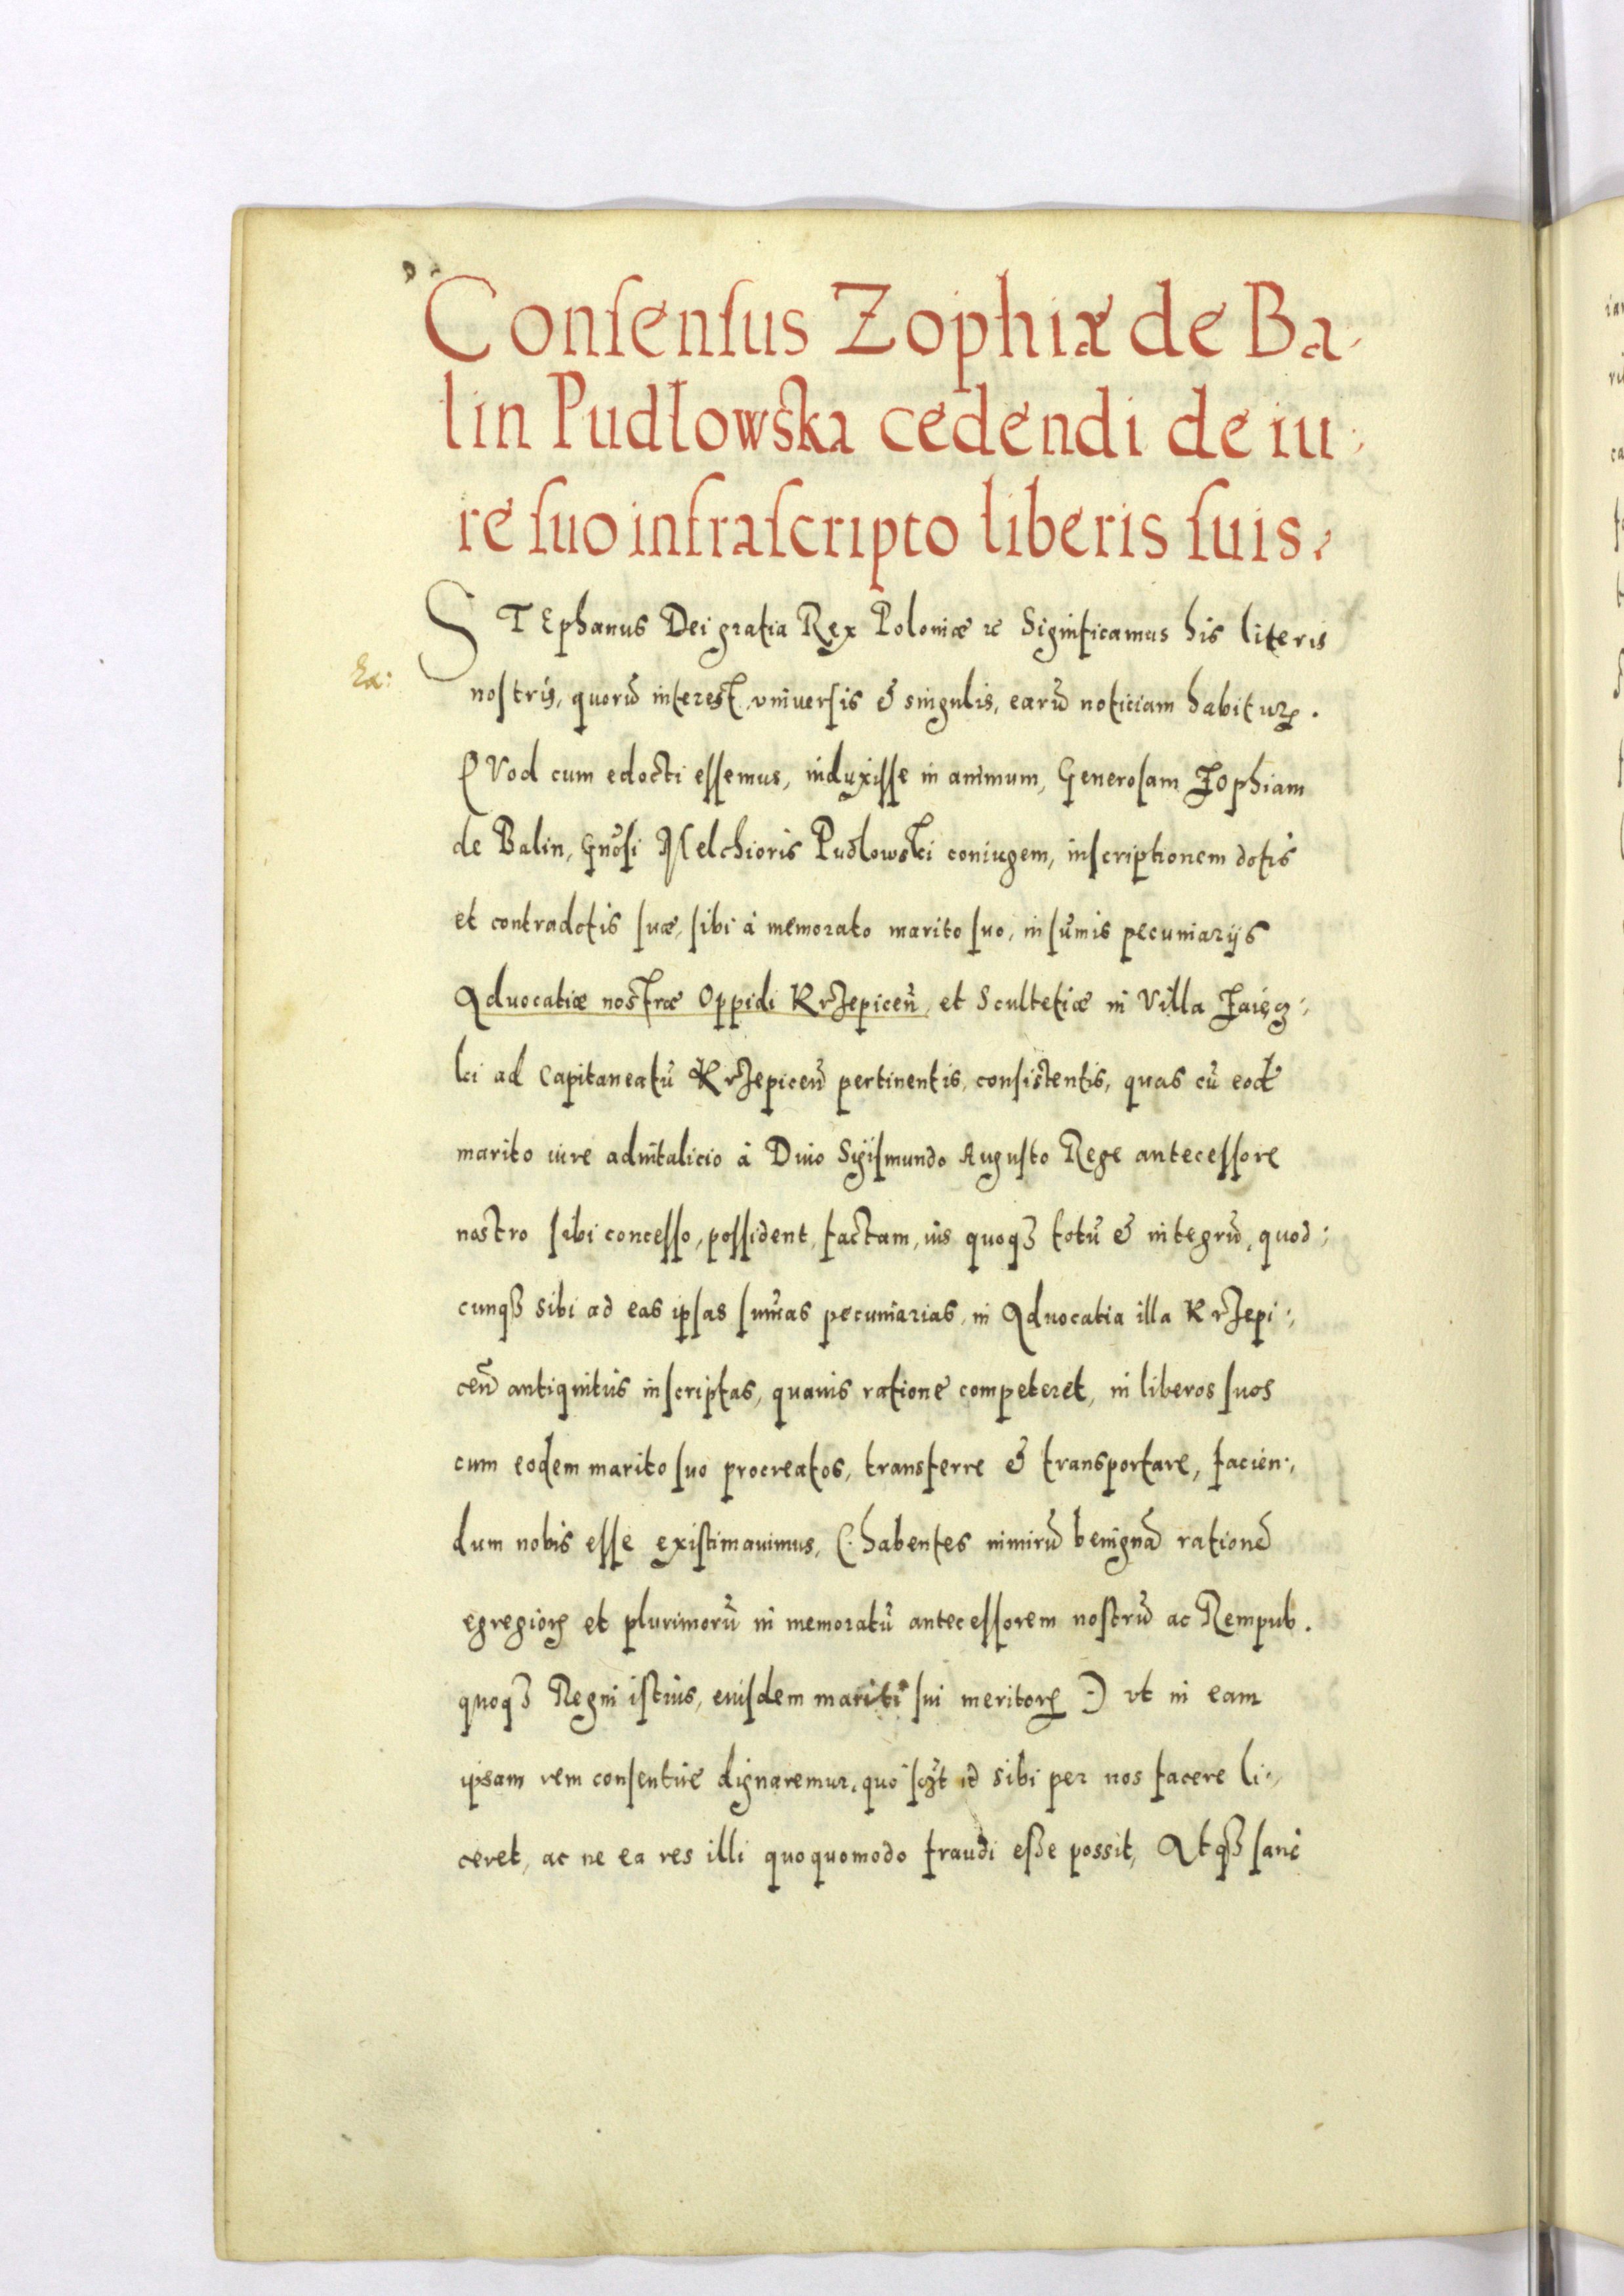 Conſenſus Zophiæ de Ba-
lin Pudłowſka cedendi de iu-
re ſuo infraſcripto liberis ſuis.
STEphanus Dei gratia Rex Poloniæ ꝛc Significamus his literis
noſtris, quorū intereſt, vniuerſis & singulis, earū noticiam habiturꝭ.
QVod cum edocti eſſemus, induxiſſe in animum, Generoſam Zophiam
de Balin, Gnōſi Melchioris Pudlowſki coniugem, inſcriptionem dotis
et contradotis ſuæ, ſibi à memorato marito ſuo, in ſum̄is pecuniarijs
Aduocatiæ noſtræ Oppidi Krzepiceñ, et Scultetiæ in Villa Zaięcz-
ki ad Capitaneatū Krzepiceñ pertinentis, conſiſtentis, quas cū eodē
marito iure aduitalicio à Diuo Sigiſmundo Auguſto Rege anteceſſore
noſtro ſibi conceſſo, poſſident, factam, ius quoqꝫ totū & integrū, quod-
cunqꝫ sibi ad eas ipſas ſum̄as pecuniarias, in Aduocatia illa Krzepi-
ceñ antiquitus inſcriptas, quauis ratione competeret, in liberos ſuos
cum eodem marito ſuo procreatos, transferre & transportare, facien-
dum nobis eſſe exiſtimauimus, (: habentes nimirū benignā rationē
egregiorꝭ et plurimorū in memoratū anteceſſorem noſtrū ac Rempub.
quoqꝫ Regni iſtius, eiuſdem mariti ſui meritorꝭ :) vt in eam
ipsam rem conſentire dignaremur, quo id sibi per nos facere li-
ceret, ac ne ea res illi quoquomodo fraudi eſſe possit, Atqꝫ ſanè